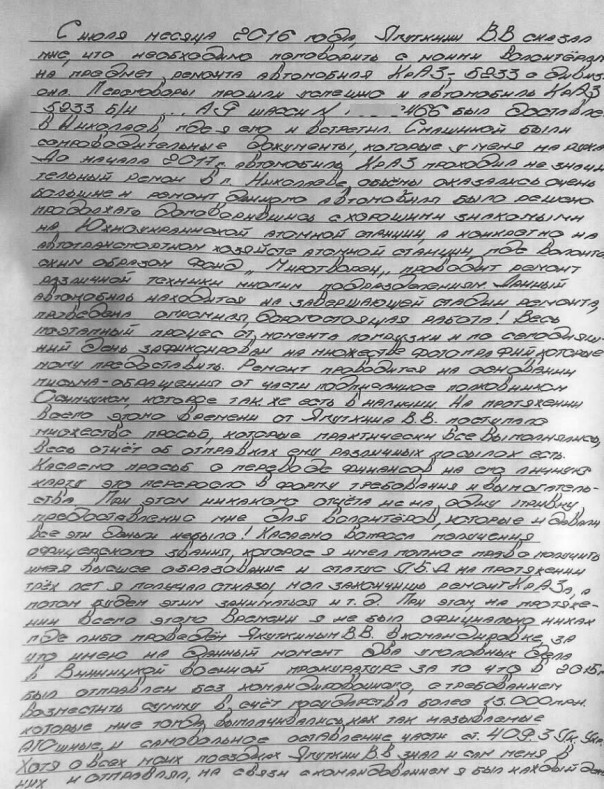 С июля месяца 2016 года, Якуткин В.В сказал
мне, что необходимо поговорить с моими волонтёрами
на предмет ремонта автомобиля КрАЗ-5233 с дивиз
она. Переговоры прошли успешно и автомобиль КрАЗ
5233 Б/Н шасси N 466 был доставле
в Николаев, где я его и встретил. С машиной были
сопроводительные документы, которые у меня на руках
До начала 2017г. автомобиль КрАЗ проходил не значи
тельный ремон в г. Николаеве, объёмы оказались очень
большие и ремонт данного автомобиля было решено
продолжать договорившись с хорошими знакомыми
на Южноукраинской атомной станции, а конкретно на
автотранспортном хозяйсте атомной станции, где
ским образом Фонд „Миротворец„ проводит ремонт
различной техники многим подразделениям. Данный
автомобиль находится на завершающей стадии ремонта,
проведена огромная, дорогостоящая работа! Весь
поэтапный процес от момента погрузки и по сегодняш-
ний день зафиксирован на множестве фотографий, которые
могу предоставить. Ремонт проводится на основании
письма-обращения от части подписанное полковником
которое так же есть в наличии. На протяжении
всего этого времени от Якуткина В.В. поступало
множество просьб, которые практически все выполнялись,
весь отчёт об отправках ему различных посылок есть.
Касаемо просьб о переводе финансов на его личную
карту это переросло в форму требования и вымогатель-
ства. При этом никакого отчёта не на одну гривну
предоставленно мне для волонтёров, которые и давали
все эти деньги небыло! Касаемо вопроса получения
офицерского звания, которое я имел полное право получить
имея высшее образование и статус УБД на протяжении
трёх лет я получал отказы, мол закончишь ремонт КрАЗа, а
потом будем этим заниматься и т.д. При этом, на протяже-
нии всего этого времени я не был официально никак
где либо проведён Якуткиным В.В. в командировке, за
что имею на данный момент два уголовных дела
в Винницкой военной прокуратуре за то что в 2015г.
был отправлен без командировочного, с требованием
возместить сумму в счёт государства более 000 грн.
которые мне тогда выплачивались, как так называемые
АТОшные, и самовольное оставление части ст. 409.3 Ук. Укр.
Хотя о всех моих поездках Якуткин В.В знал и сам меня в
них и отправлял, на связи с командованием я был каждый